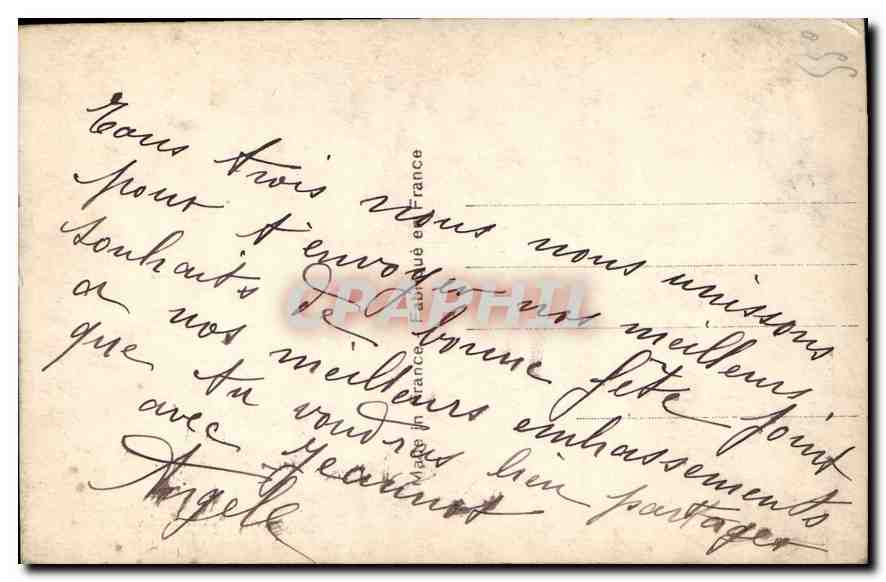 Tous trois nous nous unissons
pour t'envoyer nos meilleurs
souhaits de bonne fête joint
a nos meilleurs embrassements
que tu voudras bien partager
avec Jeannot
Angele
Made in France
Fabriqué en France
CPAPHIL